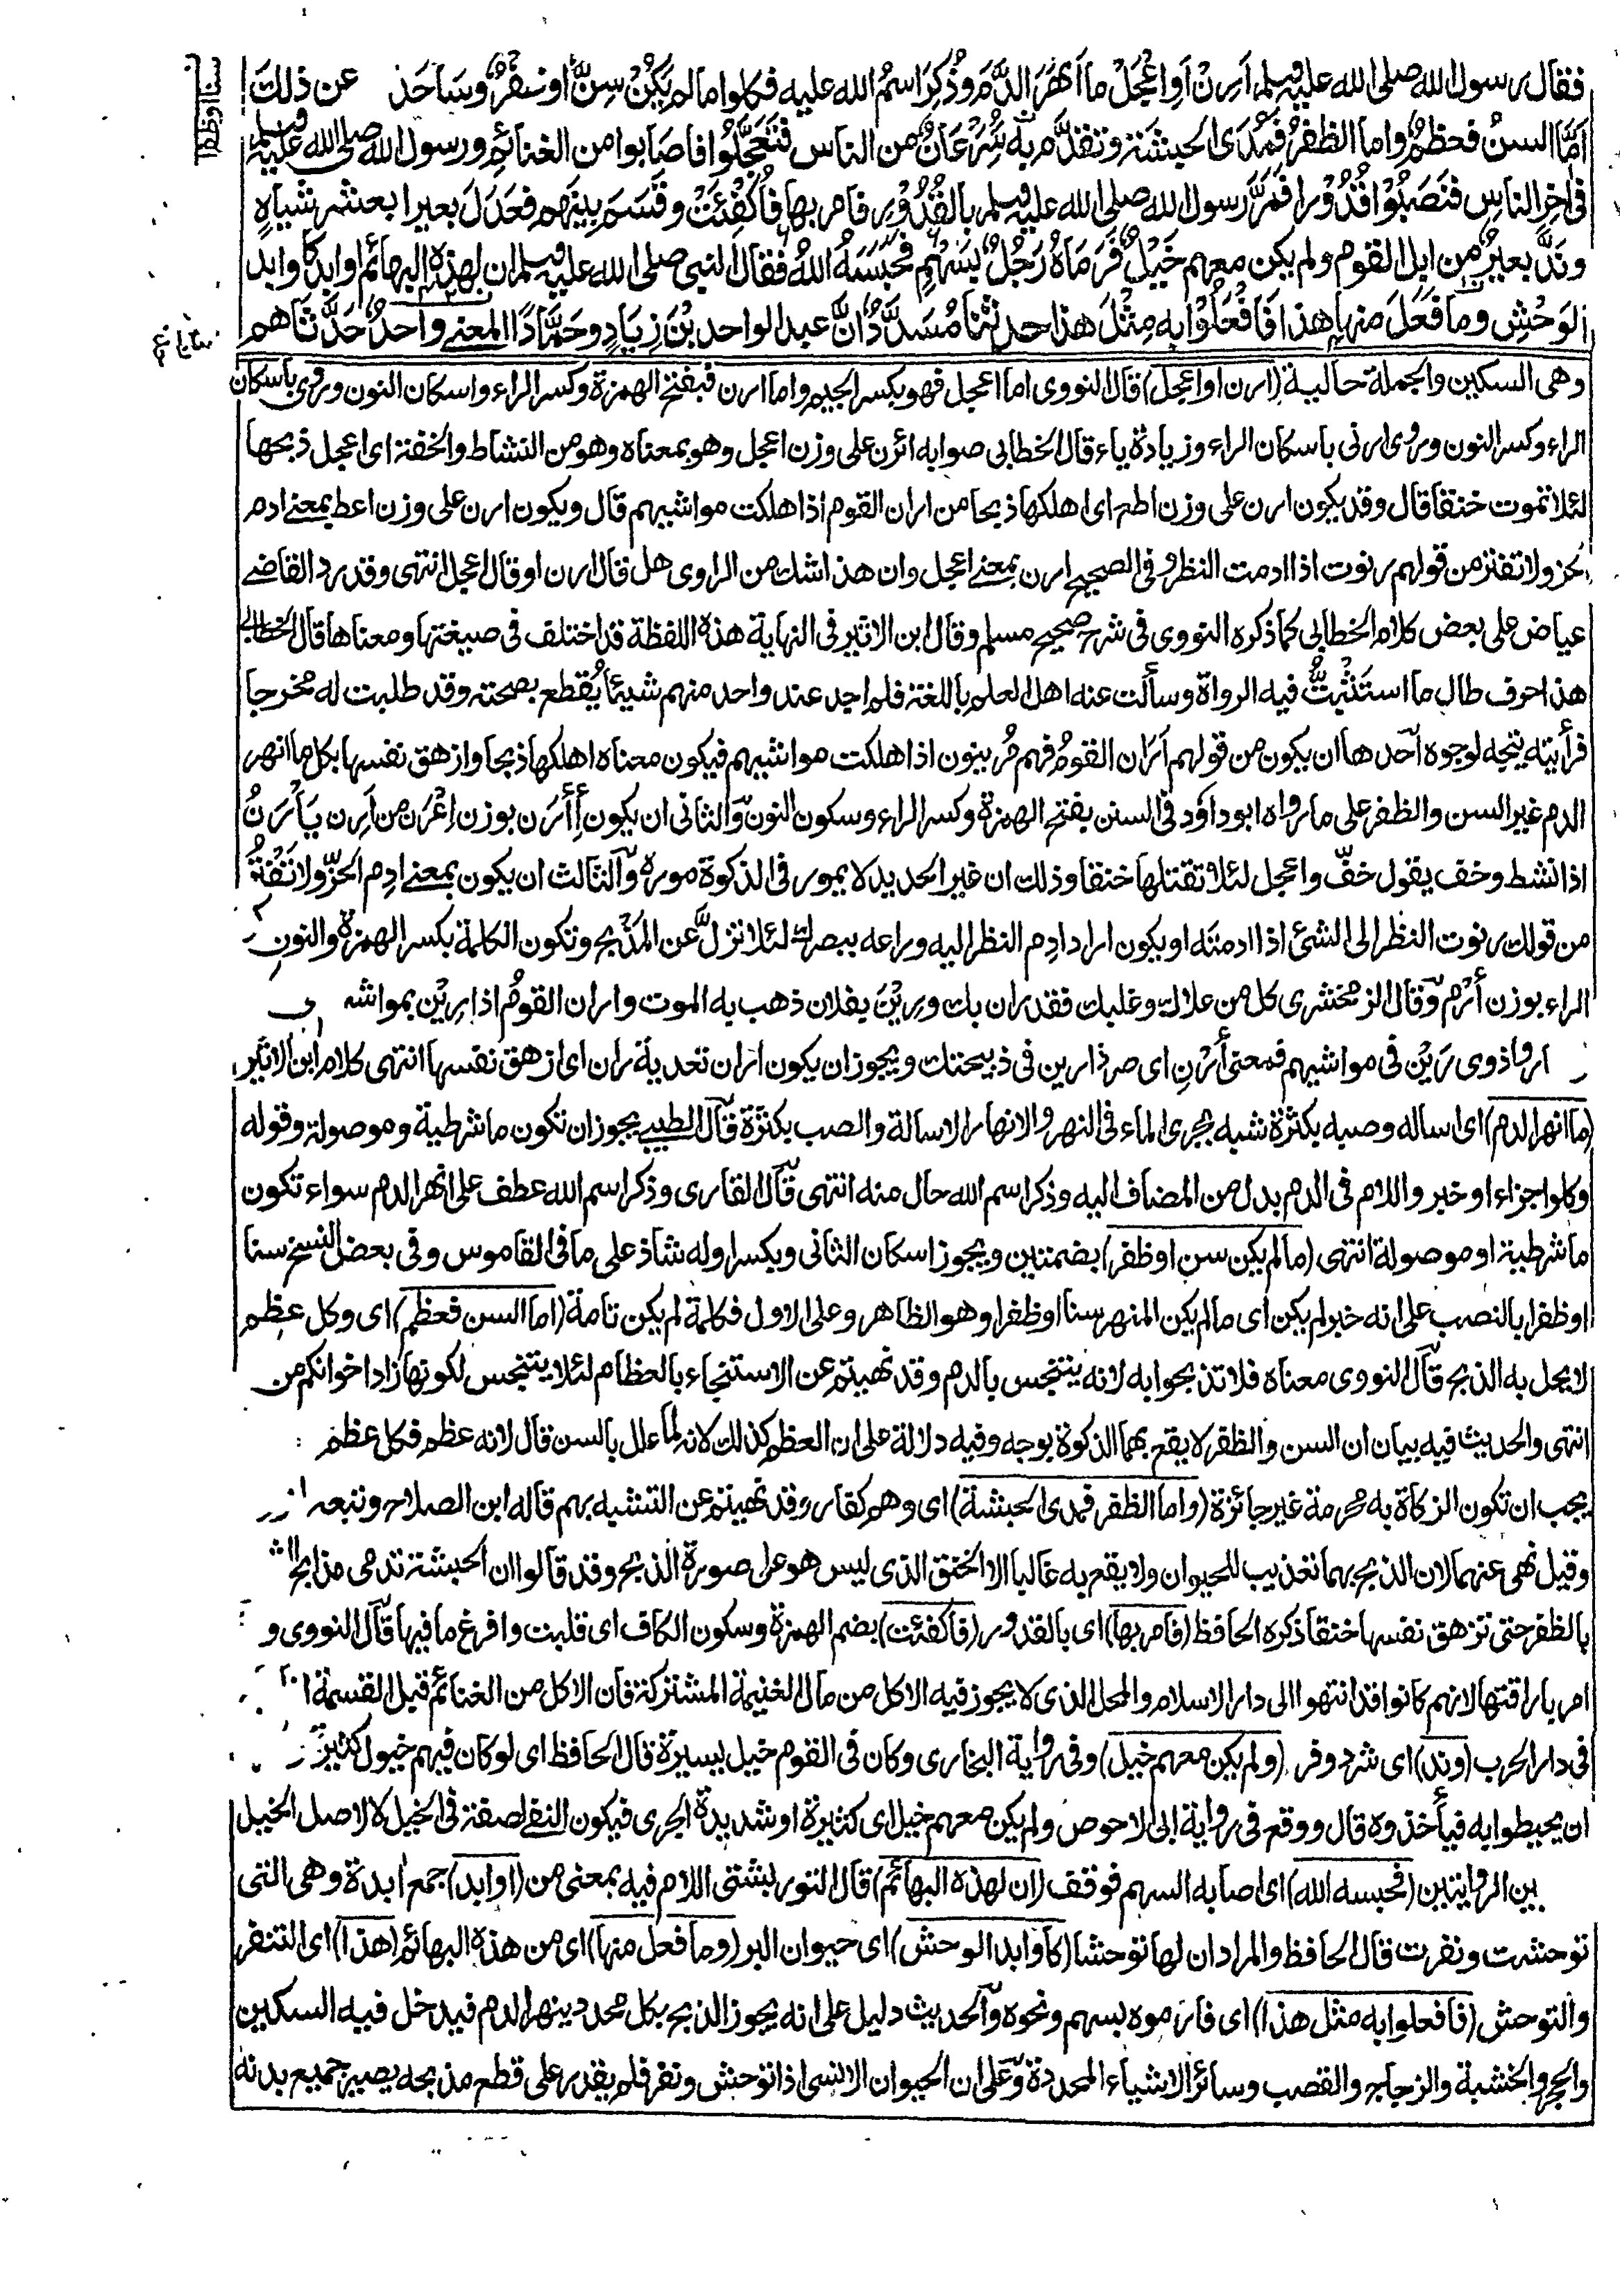 فقال رسول الله صلى الله عليه وسلم اَرِنْ اَوِاعْجَلْ ما اَنْهَرَ الدَّمَ وَذُكِرَ اسْمُ الله عليه فكلوا ما لم يَكُنْ سِنٌّ اَوْ ظُفُرٌ وَسَاُحَدِّ عن ذلكَ
سنا او ظفرا
اَمَّا السنُ فعظمٌ واما الظفرُ فَمُدَى الحبشَةِ وتقدَّم به سَرَعَانٌ من الناس فَتَعَجَّلُوا فاصابوا من الغنائم ورسول الله صلى الله عليه وسلم
فى اٰخِرِ الناسِ فَنَصَبُوْا قُدُوْرا فَمَرَّ رسول الله صلى الله عليه وسلم بالقُدُوْرِ فامر بها فَاُكْفِئَتْ وقَسَمَ بينهم فعَدَلَ بعيرا بعشر شياهٍ
وَنَدَّ بعيرٌ من ابل القوم ولم يكن معهم خَيْلٌ فَرَمَاهُ رَجُلٌ بسَهْمٍ فَحَبَسَهُ اللهُ فقال النبى صلى الله عليه وسلم ان لهذه البهائم اوابدَ كاوابد
الوَحْشِ وما فَعَلَ منها هذا فَافْعَلُوْا به مِثْلَ هذا حدثنا مُسَدَّدٌ انَّ عبد الواحد بْنَ زِيَادٍ وحَمَّادًا المعنى واحدٌ حَدَّثَاهم
وهى السكين والجملة حالية (ارن او اعجل) قال النووى اما اعجل فهو بكسر الجيم واما ارن فبفتح الهمزة وكسر الراء واسكان النون وروى باسكان
الراء وكسر النون وروى ارنى باسكان الراء وزيادة ياء قال الخطابى صوابه ائرن على وزن اعجل وهو بمعناه وهو من النشاط والخفة اى اعجل ذبحها
لئلا تموت خنقا قال وقد يكون ارن على وزن اطع اى اهلكها ذبحا من اران القوم اذا هلكت مواشيهم قال ويكون ارن على وزن اعط بمعنى ادم
الحز ولا تفتر من قولهم رنوت اذا ادمت النظر وفى الصحيح ارن بمعنى اعجل وان هذا شك من الراوى هل قال ارن او قال اعجل انتهى وقد رد القاضى
عياض على بعض كلام الخطابى كما ذكره النووى فى شرح صحيح مسلم وقال ابن الاثير فى النهاية هذه اللفظة قد اختلف فى صيغتها ومعناها قال الخطابى
هذا حرف طال ما استَثْبَتُّ فيه الرواة وسألت عنه اهل العلم باللغة فلم اجد عند واحد منهم شيئا يُقطع بصحته وقد طلبت له مخرجا
فرأيته يتجه لوجوه اَحدها ان يكون من قولهم اَرَان القومُ فهم مُرِينون اذا هلكت مواشيهم فيكون معناه اهلكها ذبحا وازهق نفسها بكل ما انهر
الدم غير السن والظفر على ما رواه ابو داؤد فى السنن بفتح الهمزة وكسر الراء وسكون النون وَالثانى ان يكون أِأْرَن بوزن اِعْرَن من اَرِن يَأْرَنُ
اذا نشط وخف يقول خفَّ واعجل لئلا تقتلها خنقا وذلك ان غير الحديد لا يمور فى الذكوة موره وَالثالث ان يكون بمعنى ادِم الحزّ ولا تَفْتُر
من قولك رنوت النظر الى الشئ اذا ادمته او يكون اراد ادِم النظر اليه وراعه ببصرك لئلا تزلَّ عن المذبح وتكون الكلمة بكسر الهمزة والنون
الراء بوزن أرْمِ وَقال الزمخشرى كل من علاك وغلبك فقد ران بك ورِيْنَ بفلان ذهب به الموت واران القومُ اذا رِيْن بمواشـ
اروا ذوى رَيْن فى مواشيهم فمعنى أَرْنِ اى صر ذا رين فى ذبيحتك ويجوز ان يكون اران تعدية ران اى ازهق نفسها انتهى كلام ابن الاثير
(ما انهر الدم) اى اساله وصبه بكثرة شبه بجرى الماء فى النهر والانهار الاسالة والصب بكثرة قال الطيبى يجوز ان تكون ما شرطية وموصولة وقوله
وكلوا جزاء او خبر واللام فى الدم بدل من المضاف اليه وذكر اسم الله حال منه انتهى قال القارى وذكر اسم الله عطف على انهر الدم سواء تكون
ما شرطية او موصولة انتهى (ما لم يكن سن او ظفر) بضمتين ويجوز اسكان الثانى وبكسر اوله شاذ على ما فى القاموس وفى بعض النسخ سنا
او ظفرا بالنصب على انه خبر لم يكن اى ما لم يكن المنهر سنا او ظفرا وهو الظاهر وعلى الاول فكلمة لم يكن تامة (اما السن فعظم) اى وكل عظم
لا يحل به الذبح قال النووى معناه فلا تذبحوا به لانه يتنجس بالدم وقد نهيتم عن الاستنجاء بالعظام لئلا يتنجس لكونها زاد اخوانكم من
انتهى والحديث فيه بيان ان السن والظفر لا يقع بهما الذكوة بوجه وفيه دلالة على ان العظم كذلك لانه لما علل بالسن قال لانه عظم فكل عظم
يجب ان تكون الزكاة به محرمة غير جائزة (واما الظفر فمدى الحبشة) اى وهم كفار وقد نهيتم عن التشبه بهم قاله ابن الصلاح وتبعه
وقيل نهى عنهما لان الذبح بهما تعذيب للحيوان ولا يقع به غالبا الا الخنق الذى ليس هو على صورة الذبح وقد قالوا ان الحبشة تدمى مذابح الشـ
بالظفر حتى تزهق نفسها خنقا ذكره الحافظ (فامر بها) اى بالقدور (فاكفئت) بضم الهمزة وسكون الكاف اى قلبت وافرغ ما فيها قال النووى و
امر باراقتها لانهم كانوا قد انتهوا الى دار الاسلام والمحل الذى لا يجوز فيه الاكل من مال الغنيمة المشتركة فان الاكل من الغنائم قبل القسمة
فى دار الحرب (وند) اى شرد وفر (ولم يكن معهم خيل) وفى رواية البخارى وكان فى القوم خيل يسيرة قال الحافظ اى لو كان فيهم خيول كثيرة
ان يحيطوا به فيأخذوه قال ووقع فى رواية ابى الاحوص ولم يكن معهم خيل اى كثيرة او شديدة الجرى فيكون النفى لصفة فى الخيل لا لاصل الخيل
بين الروايتين (فحبسه الله) اى اصابه السهم فوقف (ان لهذه البهائم) قال التوربشتى اللام فيه بمعنى من (اوابد) جمع اٰبدة وهى التى
توحشت ونفرت قال الحافظ والمراد ان لها توحشا (كاوابد الوحش) اى حيوان البر (وما فعل منها) اى من هذه البهائم (هذا) اى التنفر
والتوحش (فافعلوا به مثل هذا) اى فارموه بسهم ونحوه وَالحديث دليل على انه يجوز الذبح بكل محدد ينهر الدم فيدخل فيه السكين
والحجر والخشبة والزجاج والقصب وسائر الاشياء المحددة وَعلى ان الحيوان الانسى اذا توحش ونفر فلم يقدر على قطع مذبحه يصير جميع بدنه